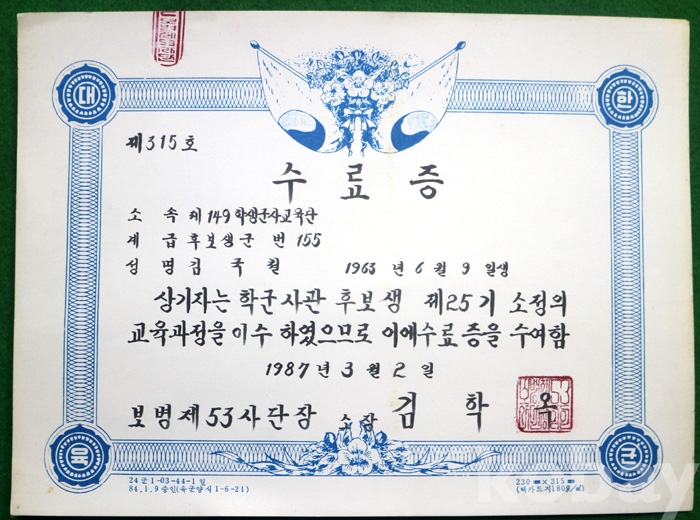 대 한
제315호
수료증
소 속 제149학생군사교육단
계 급 후보생 군 번 155
성 명 김 국 철 1963 년 6 월 9 일생
상기자는 학군사관 후보생 제25기 소정의
교육과정을 이수 하였으므로 이에 수료증을 수여함
1987 년 3 월 2 일
보병 제53사단장 소장 김 학 옥
육 군
24군1-03-44-1일
84.1.9승인(육군양식1-6-21)
230㎜×315㎜
(마카드지180g/㎡)
kobay